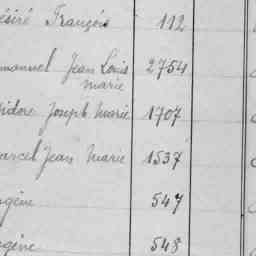 ésiré François 112
manuel Jean Louis 2754
marie
sidore Joseph Marie 1707
arcel Jean Marie 1537
ugène 547
ugène 548